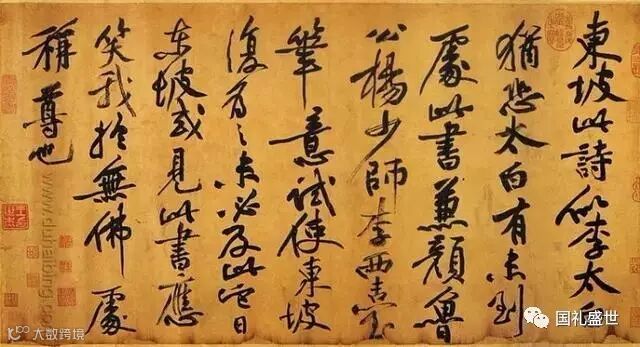 東坡此詩似李太白
猶恐太白有未到
處此書兼顏魯
公楊少師李西臺
筆意試使東坡
復為之未必及此它日
東坡或見此書應
笑我於無佛處
稱尊也
大数跨境
国礼盛世